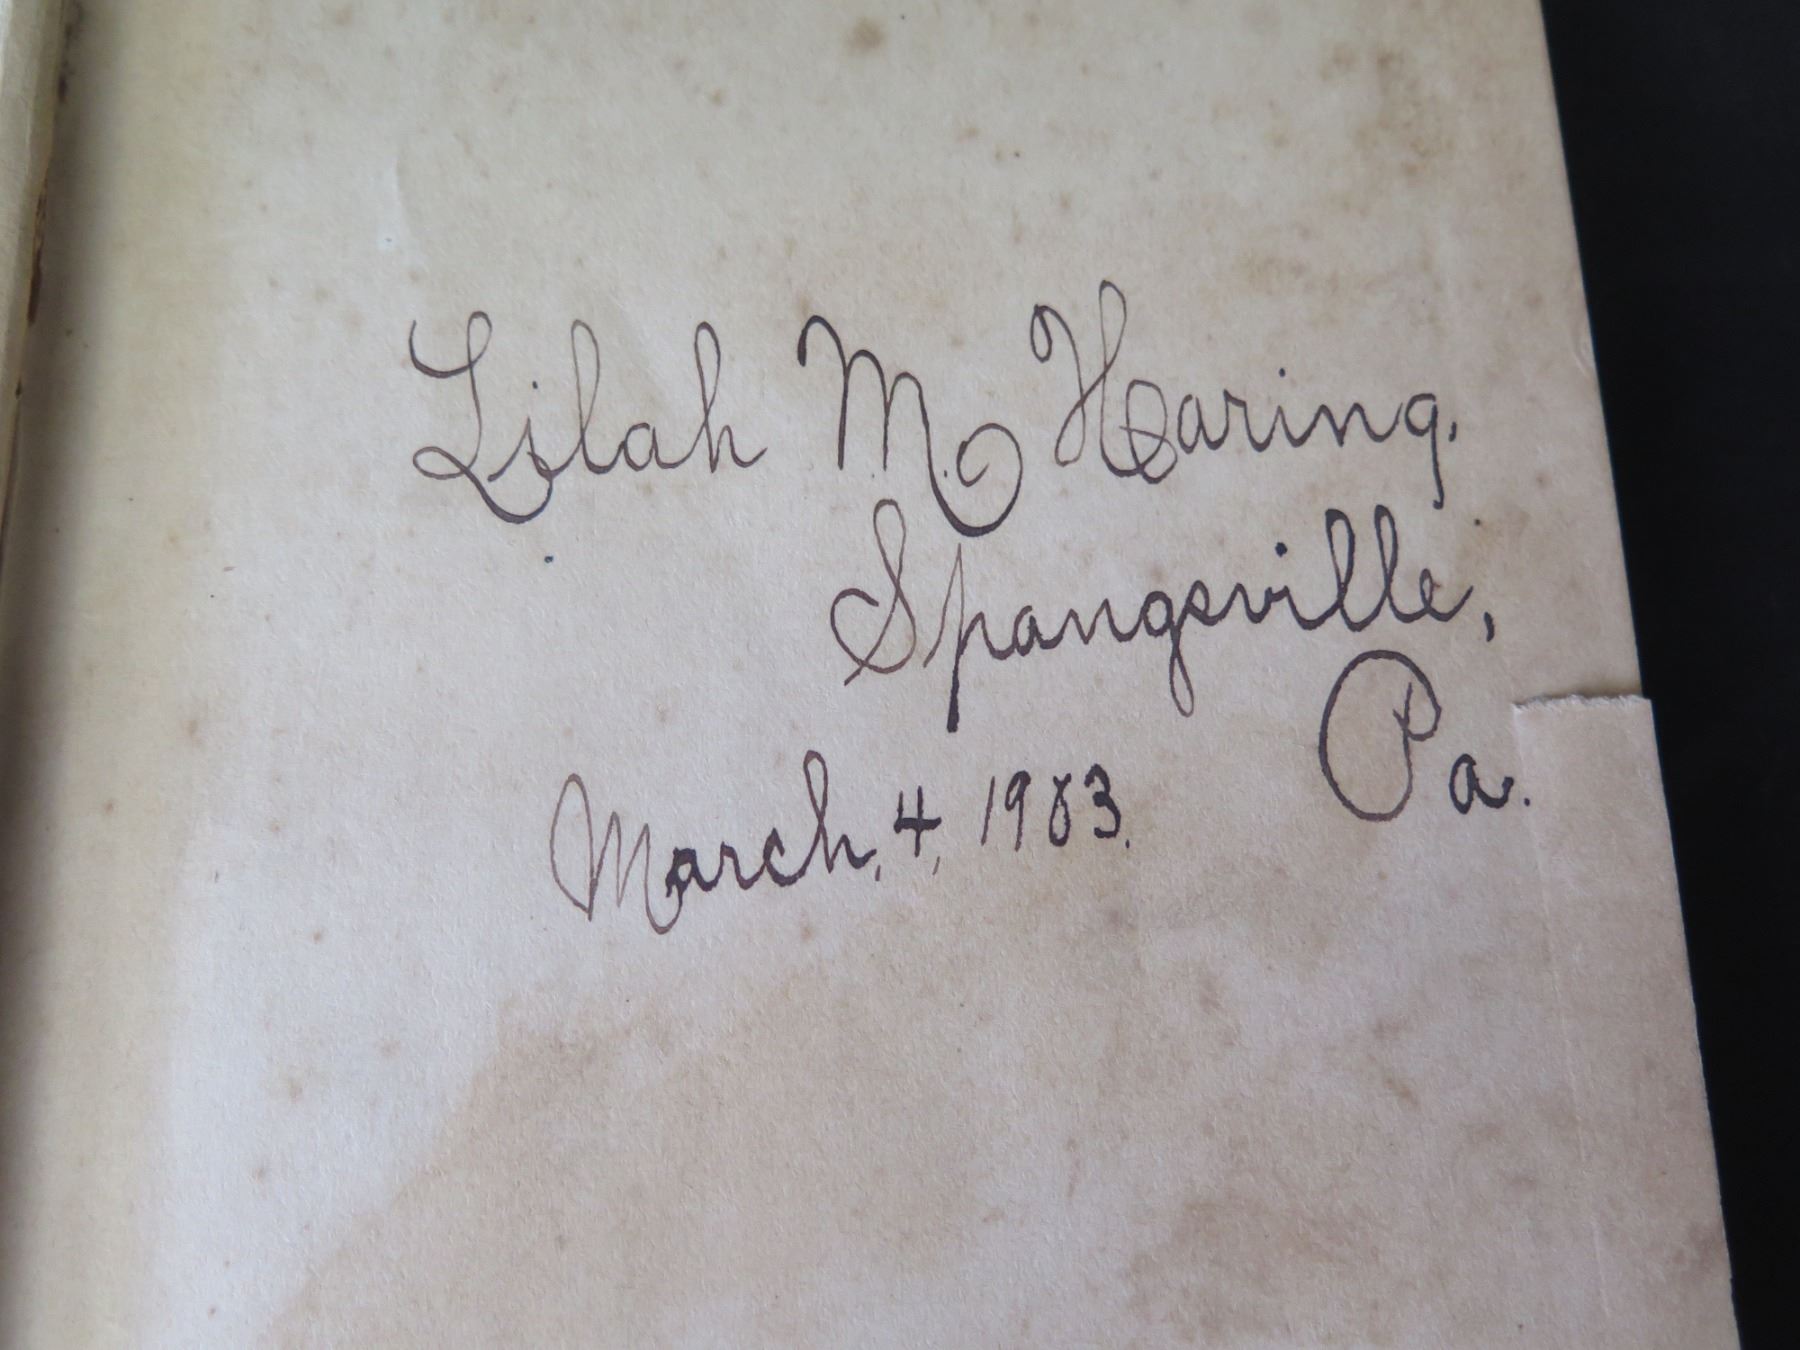 Lilah M. Haring.
Spangsville,
Pa.
March, 4, 1903.